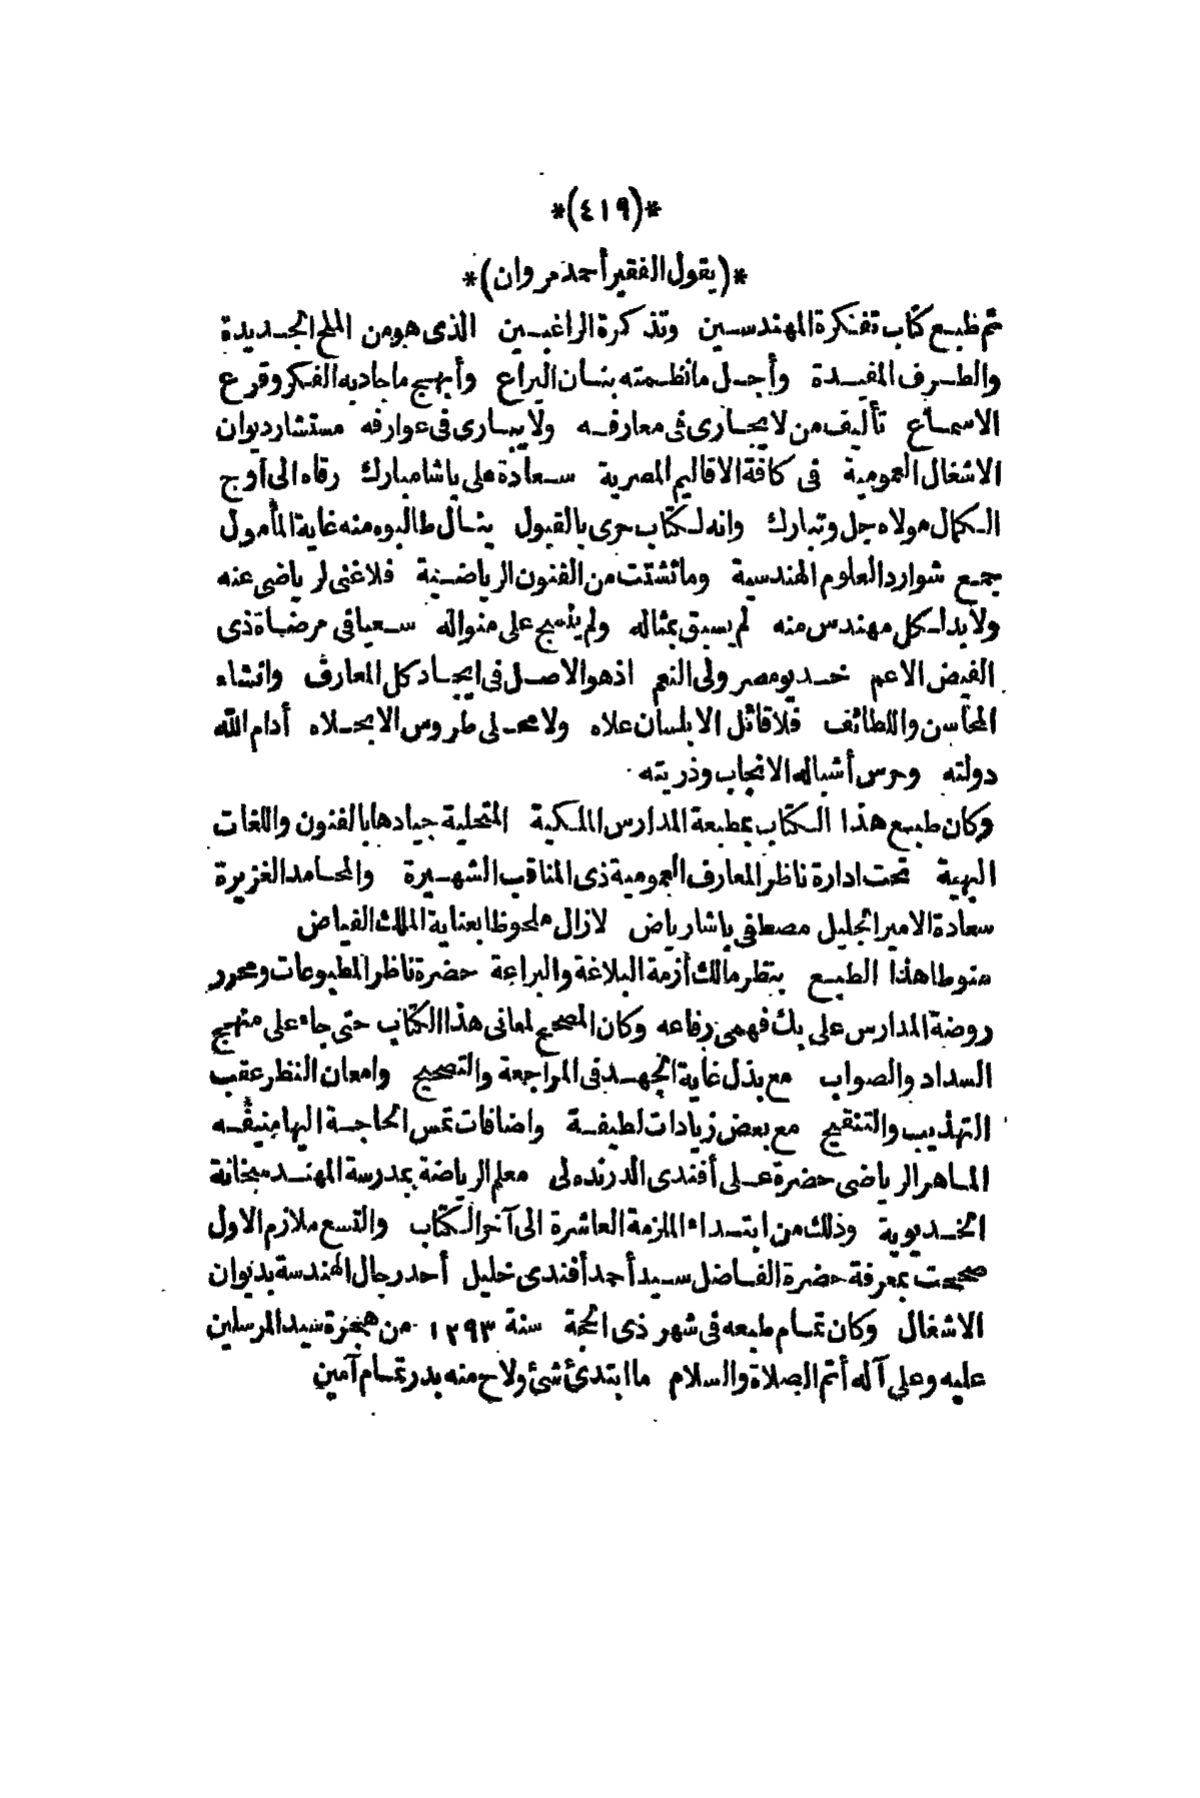 *(٤١٩)*
*(يقول الفقير أحمد مروان)*
تم طبع كتاب تفكرة المهندسين وتذكرة الراغبين الذى هو من الملح الجديدة
والطرف المفيدة وأجل ما نظمته بنان اليراع وأبهج ما جاد به الفكر وقرع
الاسماع تأليف من لا يجارى فى معارفه ولا يبارى فى عوارفه مستشار ديوان
الاشغال العمومية فى كافة الاقاليم المصرية سعادة على باشا مبارك رقاه الى أوج
الكمال مولاه جل وتبارك وانه لكتاب حرى بالقبول ينال طالبوه منه غاية المأمول
جمع شوارد العلوم الهندسية وما تشتت من الفنون الرياضية فلا غنى لرياضى عنه
ولا بد لكل مهندس منه لم يسبق بمثاله ولم ينسج على منواله سعيا فى مرضاة ذى
الفيض الاعم خديو مصر ولى النعم اذ هو الاصل فى ايجاد كل المعارف وانشاء
المحاسن واللطائف فلا قائل الا بلسان علاه ولا محلى طروس الا بحلاه أدام الله
دولته وحرس أشباله الانجاب وذريته
وكان طبع هذا الكتاب بمطبعة المدارس الملكية المتحلية جيادها بالفنون واللغات
البهية تحت ادارة ناظر المعارف العمومية ذى المناقب الشهيرة والمحامد الغزيرة
سعادة الامير الجليل مصطفى باشا رياض لازال ملحوظا بعناية الملك الفياض
منوطا هذا الطبع بنظر مالك أزمة البلاغة والبراعة حضرة ناظر المطبوعات ومحرر
روضة المدارس على بك فهمى رفاعه وكان المصحح لمعانى هذا الكتاب حتى جاء على منهج
السداد والصواب مع بذل غاية الجهد فى المراجعة والتصحيح وامعان النظر عقب
التهذيب والتنقيح مع بعض زيادات لطيفة واضافات تمس الحاجة اليها منيفه
الماهر الرياضى حضرة على أفندى الدرنده لى معلم الرياضة بمدرسة المهندسخانة
الخديوية وذلك من ابتداء الملزمة العاشرة الى آخر الكتاب والتسع ملازم الاول
صححت بمعرفة حضرة الفاضل سيد أحمد أفندى خليل أحد رجال الهندسة بديوان
الاشغال وكان تمام طبعه فى شهر ذى الحجة سنة ١٢٩٣ من هجرة سيد المرسلين
عليه وعلى آله أتم الصلاة والسلام ما ابتدئ شئ ولاح منه بدر تمام آمين